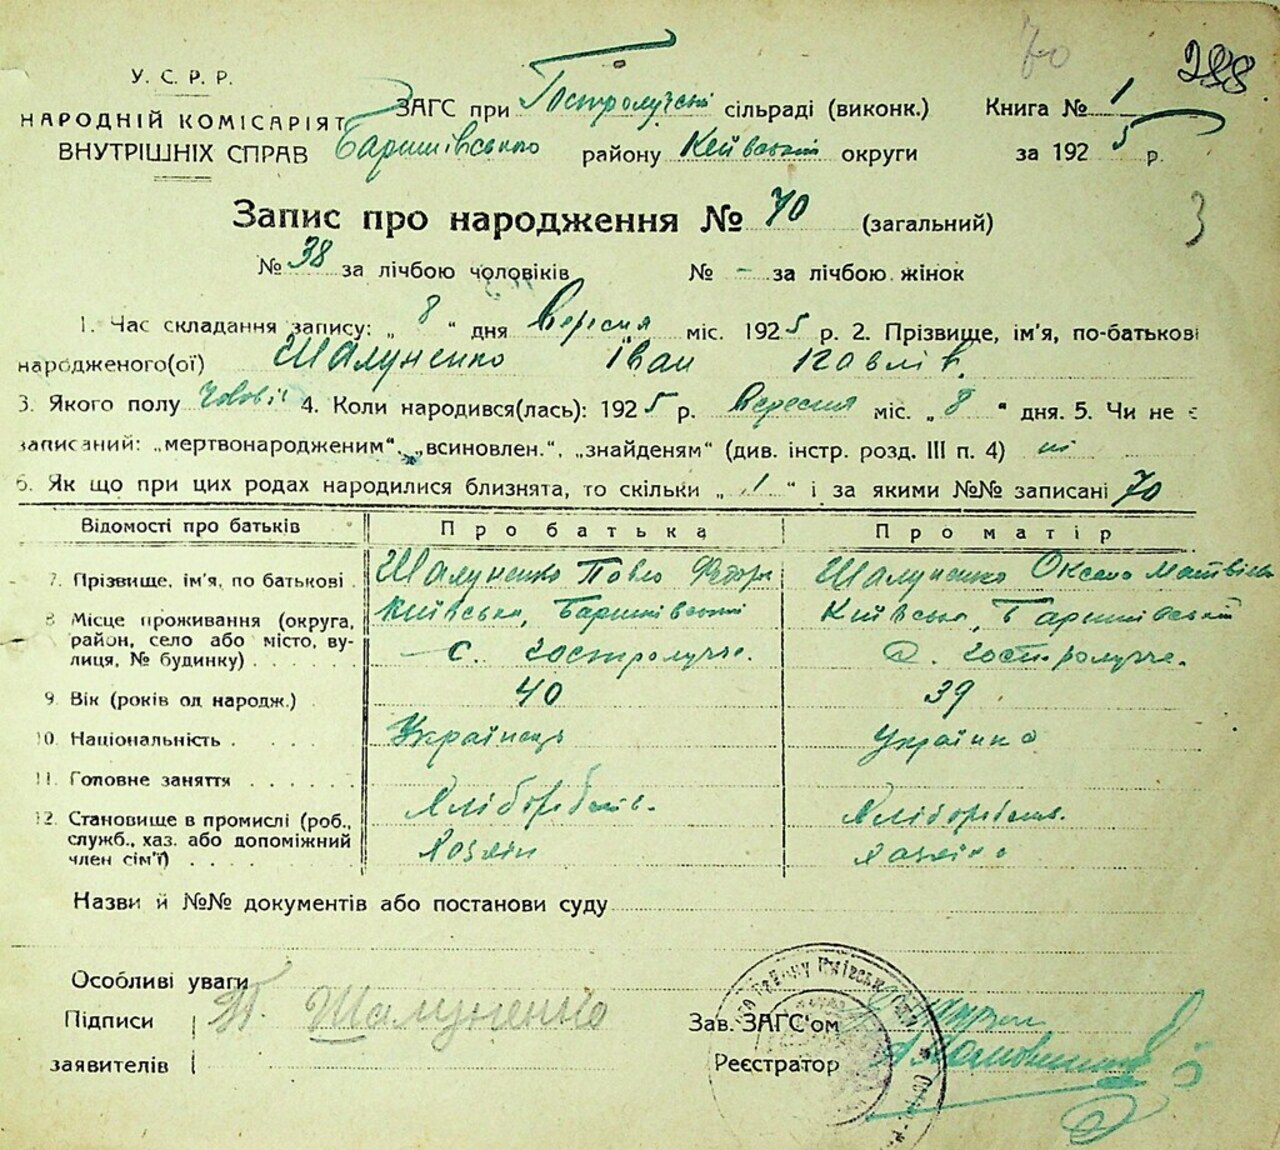 70
288
У. С. Р. Р.
НАРОДНІЙ КОМІСАРІЯТ
ВНУТРІШНІХ СПРАВ
ЗАГС при Гостролуцькі сільраді (виконк.) Книга № 1
Баришівського району Київської округи за 1925 р.
Запис про народження № 70 (загальний)
3
№ 38 за лічбою чоловіків № - за лічбою жінок
1. Час складання запису: „ 8 “ дня Вересня міс. 1925 р. 2. Прізвище, ім'я, по-батькові
народженого(ої) Шалуненко Іван Павлів.
3. Якого полу чоловіч 4. Коли народився(лась): 1925 р. Вересня міс. „ 8 “ дня. 5. Чи не є
записаний: „мертвонародженим“, „всиновлен.“, „знайденям“ (див. інстр. розд. III п. 4) ні
6. Як що при цих родах народилися близнята, то скільки „ 1 “ і за якими №№ записані 70
Відомості про батьків Про батька Про матір
7. Прізвище, ім'я, по батькові Шалуненко Павло Федорв Шалуненко Оксана Матвієв
8 Місце проживання (округа, Київська, Баришівський Київська, Баришівський
район, село або місто, ву- с. Гостролучче. с. Гостролучче.
лиця, № будинку)
9. Вік (років од народж.) 40 39
10. Національність Українець Українка
11. Головне заняття Хлібороб Хлібороб
12. Становище в промислі (роб.,
служб., хаз. або допоміжний Хазяїн Хазяйка
член сім'ї)
Назви й №№ документів або постанови суду
Особливі уваги
Підписи П. Шалуненко Зав. ЗАГС'ом
заявителів Реєстратор